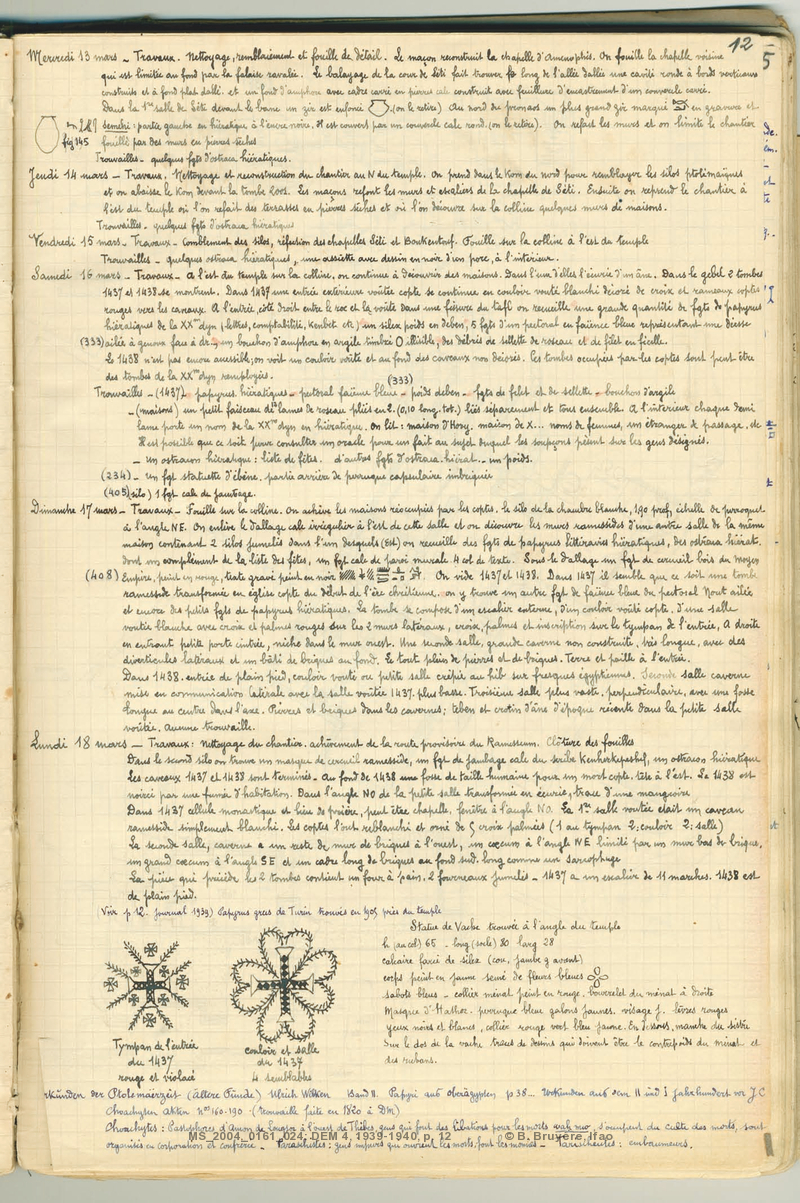 12
5
Mercredi 13 mars - Travaux. Nettoyage, remblaiement et fouille de détail. Le maçon reconstruit la chapelle d'Amenophis. On fouille la chapelle voisine
qui est limitée au fond par la falaise ravalée. Le balayage de la cour de Séti fait trouver le long de l'allée dallée une cavité ronde à bords verticaux
construits et à fond plat dallé. et un fond d'amphore avec cadre carré en pierres calc construit avec feuillure d'encastrement d'un couvercle carré.
Dans la 1re salle de Séti devant le banc un zir est enfoncé (on le retire). Au nord du pronaos un plus grand zir marqué en gravure et
en 2.8.9 semehi: partie gauche en hiératique à l'encre noire. Il est couvert par un couvercle calc rond. (on le retire). On refait les murs et on limite le chantier
fig 145 fouillé par des murs en pierres sèches
Trouvailles - quelques fgts d'ostraca hiératiques.
Jeudi 14 mars - Travaux. Nettoyage et reconstruction du chantier au N du temple. On prend dans le Kom du nord pour remblayer les silos ptolémaïques
et on abaisse le Kom devant la tombe 2005. Les maçons refont les murs et escaliers de la chapelle de Séti. Ensuite on reprend le chantier à
l'est du temple où l'on refait des terrasses en pierres sèches et où l'on découvre sur la colline quelques murs de maisons.
Trouvailles - quelques fgts d'ostraca hiératiques
Vendredi 15 mars - Travaux - Comblement des silos, réfection des chapelles Séti et Boukentouf. Fouille sur la colline à l'est du temple
Trouvailles - quelques ostraca hiératiques, une assiette avec dessin en noir d'un porc, à l'intérieur.
Samedi 16 mars - Travaux - A l'est du temple sur la colline, on continue à découvrir des maisons. Dans l'une d'elles l'écurie d'un âne. Dans le gebel 2 tombes
1437 et 1438 se montrent. Dans 1437 une entrée extérieure voûtée copte se continue en couloir vouté blanchi décoré de croix et rameaux coptes
rouges vers les caveaux. A l'entrée, côté droit entre le roc et la voûte dans une fissure du tafl on recueille une grande quantité de fgts de papyrus
hiératiques de la XXme dyn (lettres, comptabilité, Kenbet etc) un silex poids en deben, 5 fgts d'un pectoral en faïence bleue représentant une déesse
(333) ailée à genoux face à dr., un bouchon d'amphore en argile timbré illisible, des débris de sellette de roseaux et de filet en ficelle.
Le 1438 n'est pas encore accessible; on voit un couloir voûté et au fond des caveaux non décorés. Les tombes occupées par les coptes sont peut être
des tombes de la XXme dyn remployées.
(333)
Trouvailles - (1437) papyrus hiératiques - pectoral faïence bleue - poids deben - fgts de filet et de sellette - bouchons d'argile
- (maisons) un petit faisceau de lames de roseau pliés en 2. (0,10 long. tot.) liés séparément et tous ensemble. A l'intérieur chaque demi
lame porte un nom de la XXme dyn en hiératique. On lit: maison d'Hory. maison de X... noms de femmes, un étranger de passage, etc
Il est possible que ce soit pour consulter un oracle pour un fait au sujet duquel les soupçons pèsent sur les gens désignés.
- un ostracon hiératique: liste de fêtes. d'autres fgts d'ostraca hiérat. - un poids.
(234) - un fgt statuette d'ébène. partie arrière de perruque capsulaire imbriquée
(405) silo) 1 fgt calc de jambage.
Dimanche 17 mars - Travaux - Fouille sur la colline. On achève les maisons réoccupées par les coptes. le silo de la chambre blanche, 1,90 prof, échelle de perroquet
à l'angle NE. On enlève le dallage calc irrégulier à l'est de cette salle et on découvre les murs ramessides d'une autre salle de la même
maison contenant 2 silos jumelés dans l'un desquels (Est) on recueille des fgts de papyrus littéraires hiératiques, des ostraca hiérat.
dont un complément de la liste des fêtes, un fgt calc de paroi murale 4 col de texte. Sous le dallage un fgt de cercueil bois du Moyen
(408) Empire, peint en rouge, texte gravé peint en noir On vide 1437 et 1438. Dans 1437 il semble que ce soit une tombe
ramesside transformée en église copte du début de l'ère chrétienne. on y trouve un autre fgt de faïence bleue du pectoral Nout ailée
et encore des petits fgts de papyrus hiératiques. La tombe se compose d'un escalier enterré, d'un couloir voûté copte. d'une salle
voutée blanche avec croix et palmes rouges sur les 2 murs latéraux, croix, palmes et inscription sur le tympan de l'entrée, A droite
en entrant petite porte cintrée, niche dans le mur ouest. Une seconde salle, grande caverne non construite, très longue, avec des
diverticules latéraux et un bâti de briques au fond. Le tout plein de pierres et de briques. Terre et paille à l'entrée.
Dans 1438. entrée de plain pied, couloir vouté ou petite salle crépie au hib sur fresques égyptiennes. Seconde salle caverne
mise en communication latérale avec la salle voûtée 1437. plus basse. Troisième salle plus vaste, perpendiculaire, avec une fosse
longue au centre dans l'axe. Pierres et briques dans les cavernes; teben et crotin d'âne d'époque récente dans la petite salle
voûtée. Aucune trouvaille.
Lundi 18 mars - Travaux: Nettoyage du chantier. achèvement de la route provisoire du Ramesseum. Clôture des fouilles
Dans le second silo on trouve un masque de cercueil ramesside, un fgt de jambage calc du scribe Kenherkepeshef, un ostracon hiératique
Les caveaux 1437 et 1438 sont terminés. Au fond de 1438 une fosse de taille humaine pour un mort copte. tête à l'est. Le 1438 est
noirci par une fumée d'habitation. Dans l'angle NO de la petite salle transformée en écurie, trace d'une mangeoire
Dans 1437 cellule monastique et lieu de prière, peut être chapelle, fenêtre à l'angle NO. La 1re salle voutée était un caveau
ramesside simplement blanchi. Les coptes l'ont reblanchi et orné de 5 croix palmées (1 au tympan 2: couloir 2: salle)
La seconde salle, caverne a un reste de mur de briques à l'ouest, un cœcum à l'angle NE limité par un mur bas de briques,
un grand cœcum à l'angle SE et un cadre long de briques au fond sud. long comme un sarcophage
La pièce qui précède les 2 tombes contient un four à pain. 2 fourneaux jumelés - 1437 a un escalier de 11 marches. 1438 est
de plain pied.
(Voir p 12. journal 1939) Papyrus grecs de Turin trouvés en 1905 près du temple
Tympan de l'entrée
du 1437
rouge et violacé
couloir et salle
du 1437
4 semblables
Statue de Vache trouvée à l'angle du temple
h (au col) 65 - long (socle) 80 larg 28
calcaire farci de silex (cou, jambe g avant)
corps peint en jaune semé de fleurs bleues
sabots bleus - collier ménat peint en rouge. bourrelet du ménat à droite
Masque d'Hathor. perruque bleue galons jaunes. visage j. lèvres rouges
yeux noirs et blancs, collier rouge vert bleu jaune. En dessous, manche du sistre
Sur le dos de la vache traces de dessins qui doivent être le contrepoids du ménat et
des rubans.
Urkunden der Ptolemaerzeit (ältere Funde) Ulrich Wilken Band II. Papyri aus Oberägypten p 38... Urkunden aus dem II und I Jahrhundert vor J.C
Choachyten Akten nos 160-190 - (trouvaille faite en 1820 à DM)
Choachytes: Pastophores d'Amon de Louqsor à l'ouest de Thèbes, gens qui font des libations pour les morts wah mw, s'occupent du culte des morts, sont
organisés en corporation et confrérie. - Paraschistes: gens impurs qui ouvrent les morts, font les momies - Taricheutes: embaumeurs.
MS_2004_0161_024: DEM 4, 1939-1940, p. 12 © B. Bruyère, Ifao